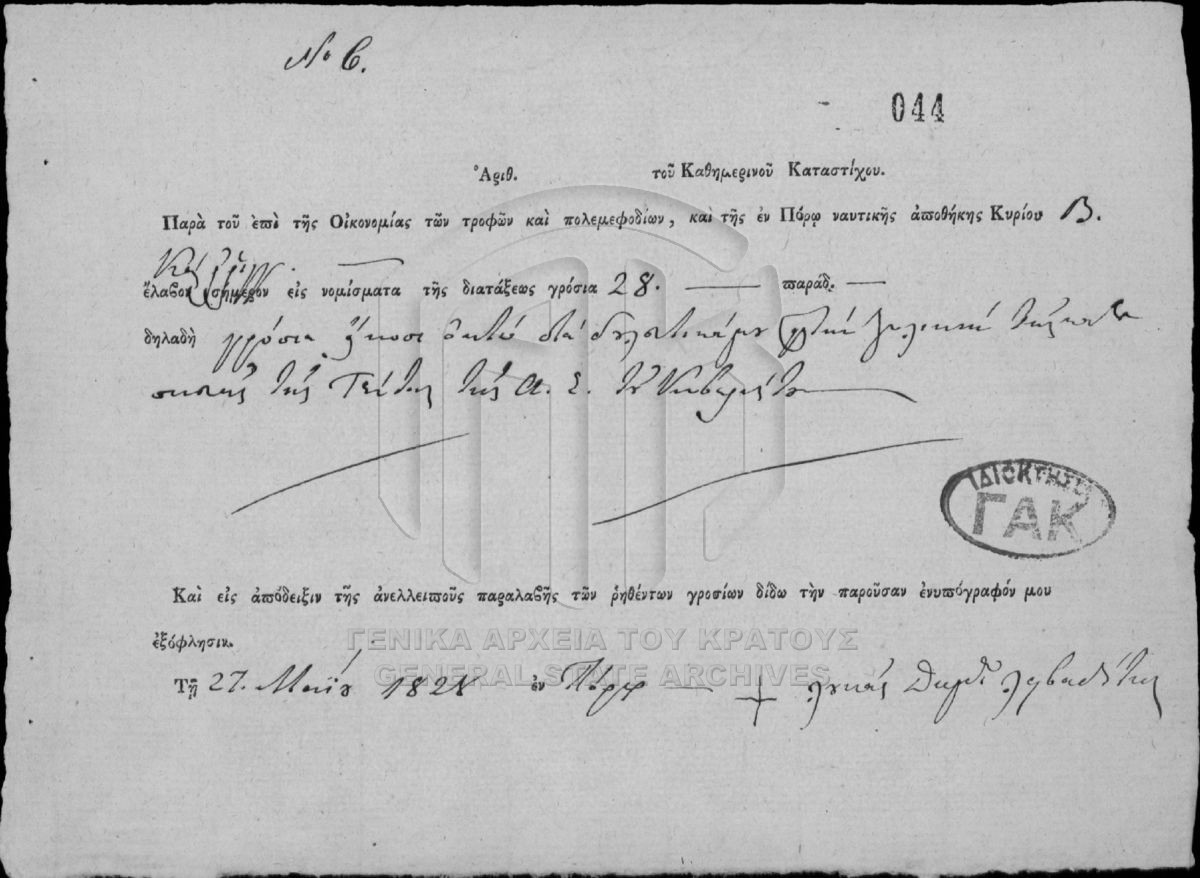 Νο 6.
044
Ἀριθ. τοῦ Καθημερινοῦ Καταστίχου.
Παρὰ τοῦ ἐπὶ τῆς Οἰκονομίας τῶν τροφῶν καὶ πολεμεφοδίων, καὶ τῆς ἐν Πόρῳ ναυτικῆς ἀποθήκης Κυρίου Β.
ἔλαβον σήμερον εἰς νομίσματα τῆς διατάξεως γρόσια 28. — παράδ. —
δηλαδὴ γρόσια εἴκοσι ὀκτὼ διὰ
τῆς τῆς Α. Ε. τοῦ Κυβερνήτου
ΙΔΙΟΚΤΗΣΙΑ
ΓΑΚ
Καὶ εἰς ἀπόδειξιν τῆς ἀνελλειποῦς παραλαβῆς τῶν ῥηθέντων γροσίων δίδω τὴν παροῦσαν ἐνυπόγραφόν μου
ἐξόφλησιν.
ΓΕΝΙΚΑ ΑΡΧΕΙΑ ΤΟΥ ΚΡΑΤΟΥΣ
GENERAL STATE ARCHIVES
Τῇ 27. Μαΐου 1828 ἐν Πόρῳ — + λουκάς